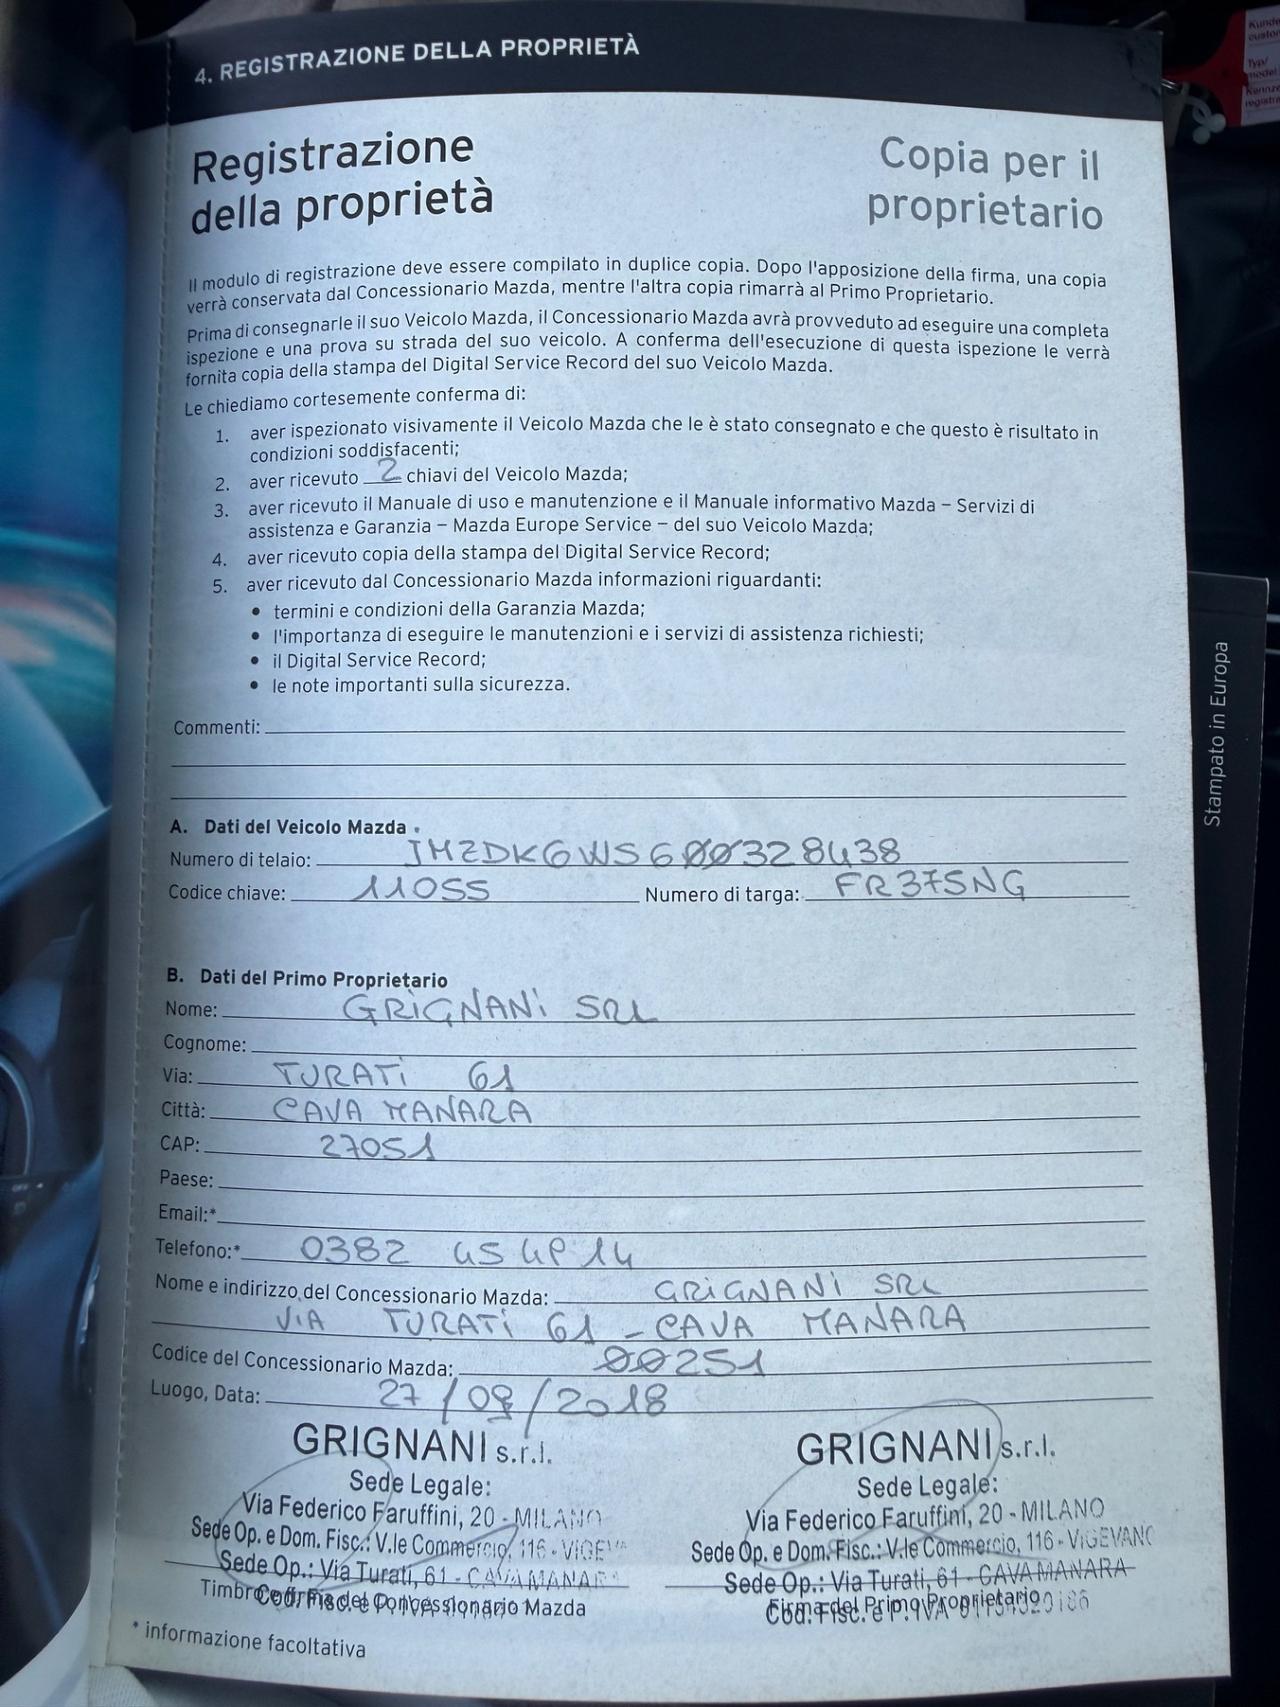 4. REGISTRAZIONE DELLA PROPRIETÀ
Registrazione
della proprietà
Copia per il
proprietario
Il modulo di registrazione deve essere compilato in duplice copia. Dopo l'apposizione della firma, una copia
verrà conservata dal Concessionario Mazda, mentre l'altra copia rimarrà al Primo Proprietario.
Prima di consegnarle il suo Veicolo Mazda, il Concessionario Mazda avrà provveduto ad eseguire una completa
ispezione e una prova su strada del suo veicolo. A conferma dell'esecuzione di questa ispezione le verrà
fornita copia della stampa del Digital Service Record del suo Veicolo Mazda.
Le chiediamo cortesemente conferma di:
1. aver ispezionato visivamente il Veicolo Mazda che le è stato consegnato e che questo è risultato in
condizioni soddisfacenti;
2. aver ricevuto 2 chiavi del Veicolo Mazda;
3. aver ricevuto il Manuale di uso e manutenzione e il Manuale informativo Mazda – Servizi di
assistenza e Garanzia – Mazda Europe Service – del suo Veicolo Mazda;
4. aver ricevuto copia della stampa del Digital Service Record;
5. aver ricevuto dal Concessionario Mazda informazioni riguardanti:
• termini e condizioni della Garanzia Mazda;
• l'importanza di eseguire le manutenzioni e i servizi di assistenza richiesti;
• il Digital Service Record;
• le note importanti sulla sicurezza.
Commenti:
A. Dati del Veicolo Mazda
Numero di telaio: JMZDK6WS600328438
Codice chiave: 11055 Numero di targa: FR375NG
B. Dati del Primo Proprietario
Nome: GRIGNANI SRL
Cognome:
Via: TURATI 61
Città: CAVA MANARA
CAP: 27051
Paese:
Email:*
Telefono:* 0382
Nome e indirizzo del Concessionario Mazda: GRIGNANI SRL
VIA TURATI 61 - CAVA MANARA
Codice del Concessionario Mazda: 00251
Luogo, Data: 27/09/2018
GRIGNANI s.r.l.
Sede Legale:
Via Federico Faruffini, 20 - MILANO
Sede Op. e Dom. Fisc.: V.le Commercio, 116 - VIGEV
Sede Op.: Via Turati, 61 - CAVA MANAR
Timbro e firma del Concessionario Mazda
GRIGNANI s.r.l.
Sede Legale:
Via Federico Faruffini, 20 - MILANO
Sede Op. e Dom. Fisc.: V.le Commercio, 116 - VIGEVANO
Sede Op.: Via Turati, 61 - CAVA MANARA
Firma del Primo Proprietario
Cod. Fisc. e P. IVA
* informazione facoltativa
Stampato in Europa